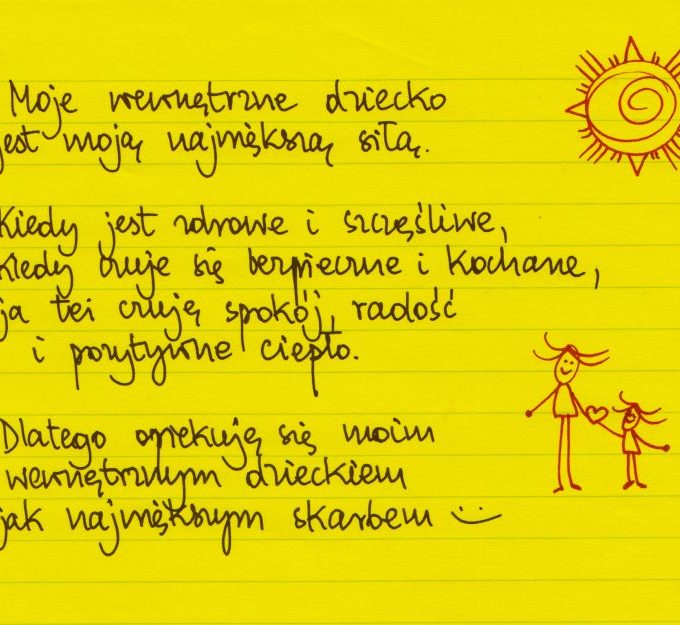 Moje wewnętrzne dziecko
jest moją największą siłą.
Kiedy jest zdrowe i szczęśliwe,
kiedy czuje się bezpieczne i kochane,
ja też czuję spokój, radość
i pozytywne ciepło.
Dlatego opiekuję się moim
wewnętrznym dzieckiem
jak największym skarbem